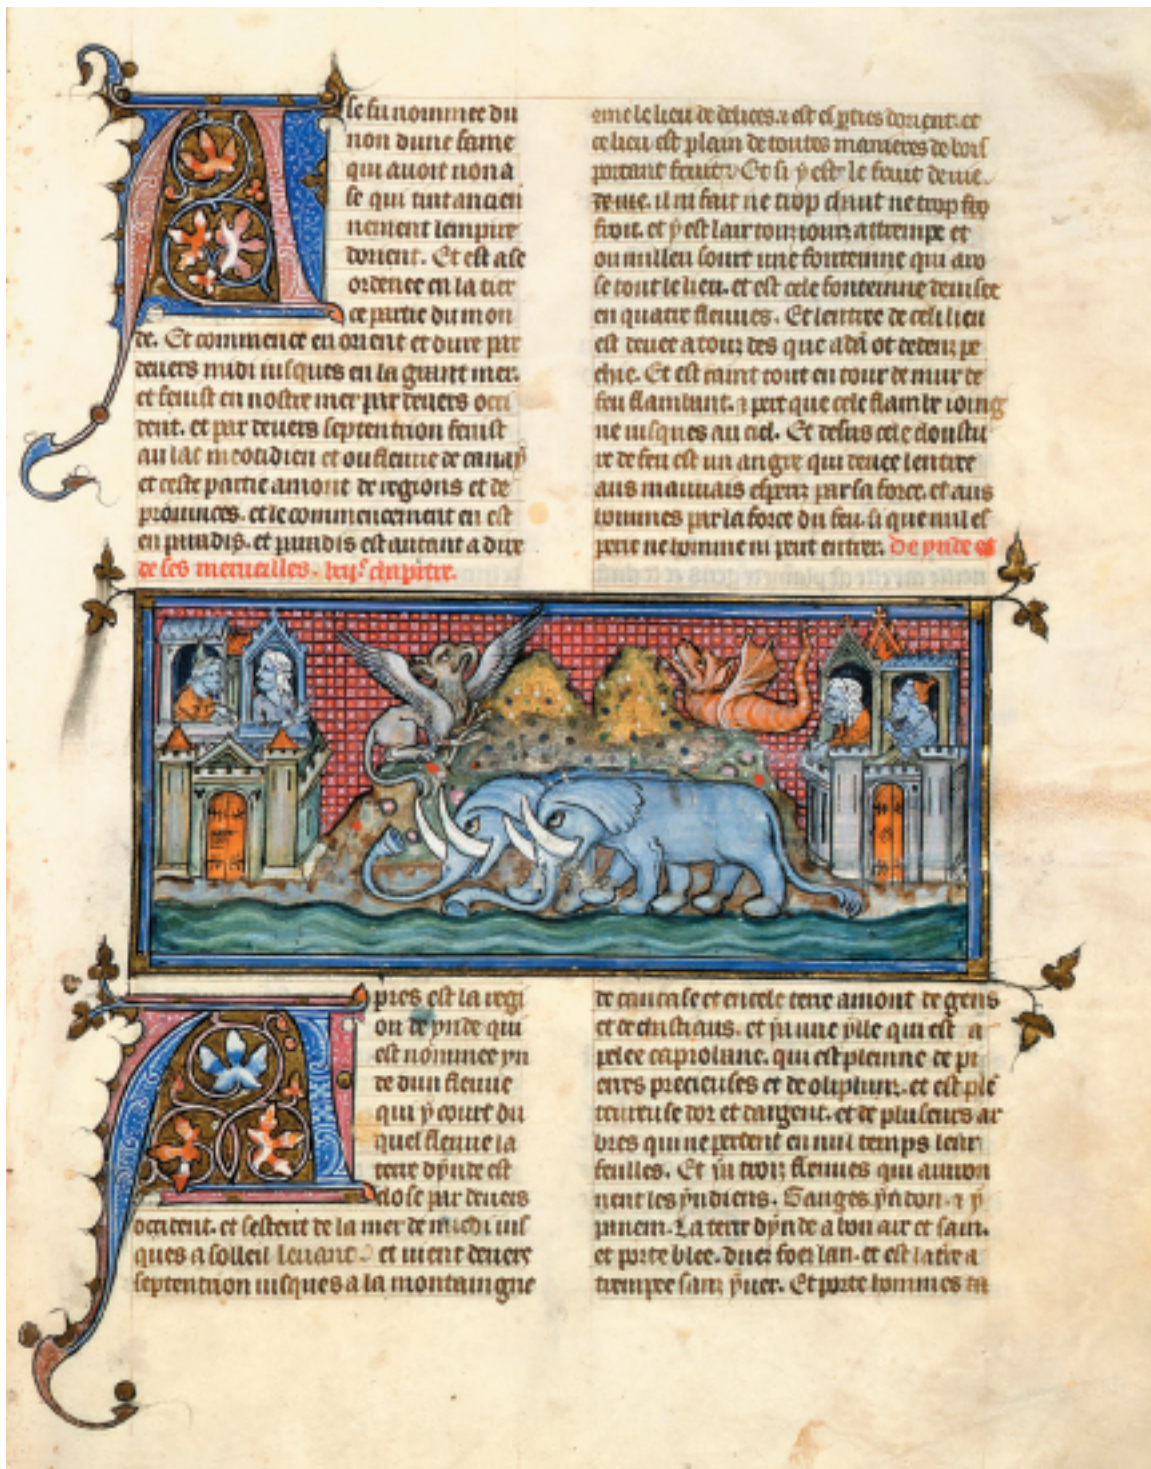 Ase fu nommee du
non dune fame
qui auoit non a
se qui tint ancien
nement lempire
dorient. Et est ase
ordenee en la tier
ce partie du mon
de. Et commence en orient et dure par
deuers midi iusques en la grant mer.
et fenist en nostre mer par deuers occi
dent. et par deuers septentrion fenist
au lac meotidien et ou fleuue de
et ceste partie a mont de regions et de
prouinces. et le commencement en est
en paradis. et paradis est autant a dire
ome le lieu de delices. et est es parties dorient. et
ce lieu est plain de toutes manieres de bois
portant fruit. Et si y est le fruit de vie.
de vie. il ni fait ne trop chaut ne trop fro
froit. et y est lair touiours attrempe et
ou milieu sourt une fontenne qui aro
se tout le lieu. et est cele fontenne deuisee
en quatre fleuues. Et lentree de celi lieu
est deuee a touz des que adã ot
chie. Et est caint tout en tour de mur de
feu flambant. et pert que cele flambe ioing
ne iusques au ciel. Et desus cele
re de feu est un angre qui deuee lentree
aus mauuais esperiz par sa force. et aus
hommes par la force du feu. si que nul es
perit ne homme ni peut entrer. De ynde et
de ses merueilles. chapitre.
Apres est la regi
on de ynde qui
est nommee yn
de dun fleuue
qui y court du
quel fleuue la
terre dynde est
close par deuers
occident. et sestent de la mer de midi ius
ques a solleil leuant. et uient deuers
septentrion iusques a la montaingne
de caucase et en cele terre a mont de gens
et de chitiaus. et y a une ylle qui est a
pelee caprobane. qui est plenne de pi
erres precieuses et de olyphanz. et est plen
teureuse dor et dargent. et de pluseurs ar
bres qui ne perdent en nul temps leur
feilles. Et y a trois fleuues qui auiron
nent les yndiens. Ganges. yndon. et y
pinem. La terre dynde a bon air et sain.
et porte blee. fois lan. et est la tere a
trempee sanz yuer. Et porte hommes